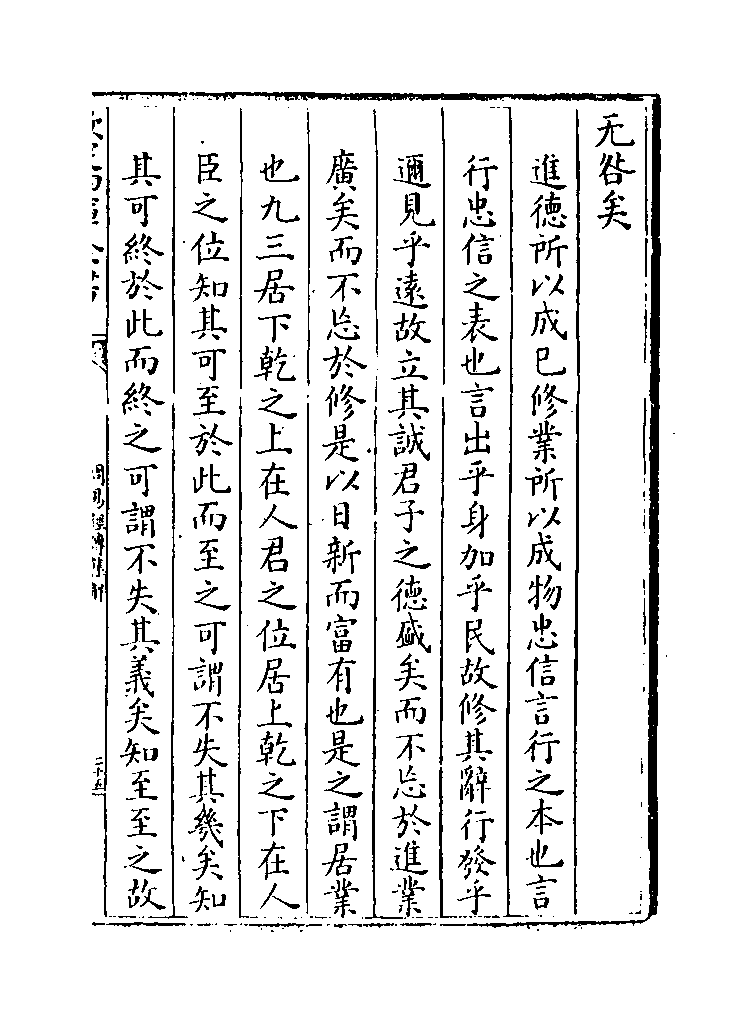 无咎矣
進德所以成已修業所以成物忠信言行之本也言
行忠信之表也言出乎身加乎民故修其辭行發乎
邇見乎遠故立其誠君子之德盛矣而不忘於進業
廣矣而不忘於修是以日新而富有也是之謂居業
也九三居下乾之上在人君之位居上乾之下在人
臣之位知其可至於此而至之可謂不失其幾矣知
其可終於此而終之可謂不失其義矣知至至之故
二十五